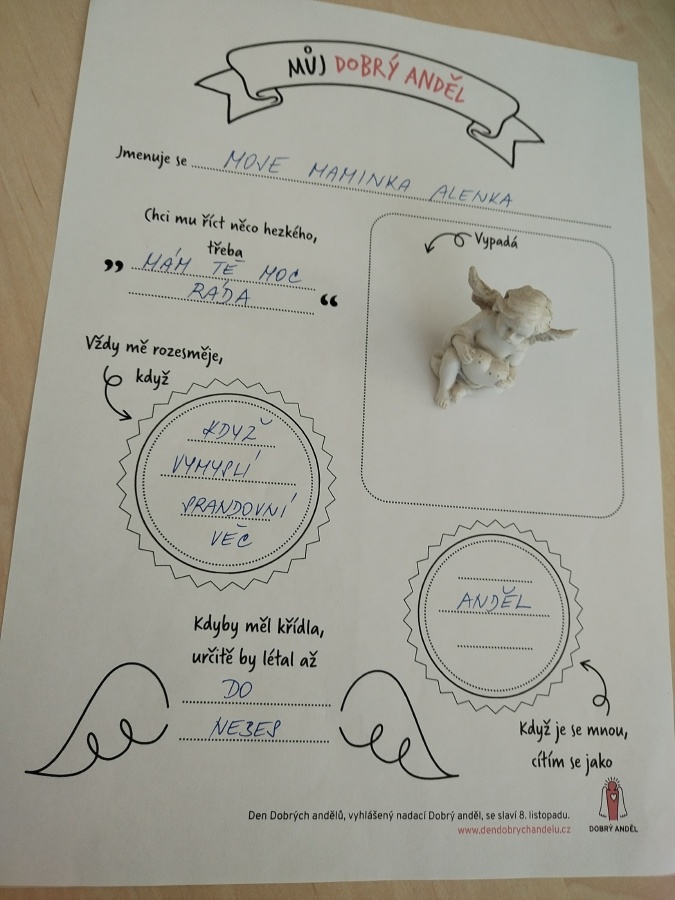 MŮJ DOBRÝ ANDĚL
Jmenuje se MOJE MAMINKA ALENKA
Chci mu říct něco hezkého,
třeba
„ MÁM TĚ MOC
RÁDA “
Vypadá
Vždy mě rozesměje,
když
KDYŽ
VYMYSLÍ
SRANDOVNÍ
VĚC
ANDĚL
Když je se mnou,
cítím se jako
Kdyby měl křídla,
určitě by létal až
DO
NEBES
Den Dobrých andělů, vyhlášený nadací Dobrý anděl, se slaví 8. listopadu.
www.dendobrychandelu.cz
DOBRÝ ANDĚL